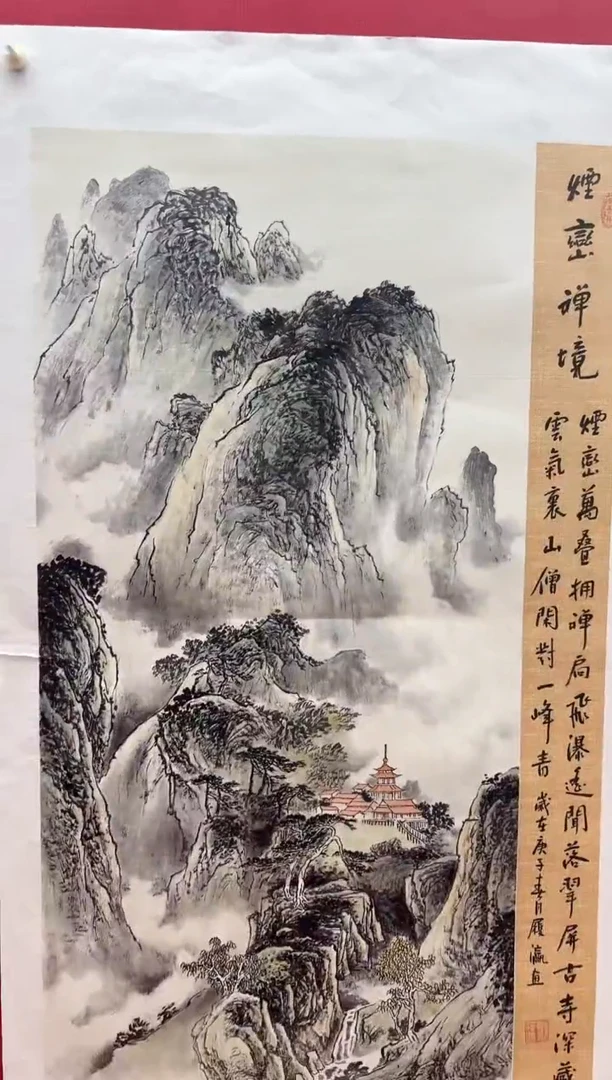 煙巒禪境
煙巒萬叠拥禅扃飛瀑遥聞落翠屏古寺深藏
雲氣裏山僧閑對一峰青
歲在庚子春月履瀛